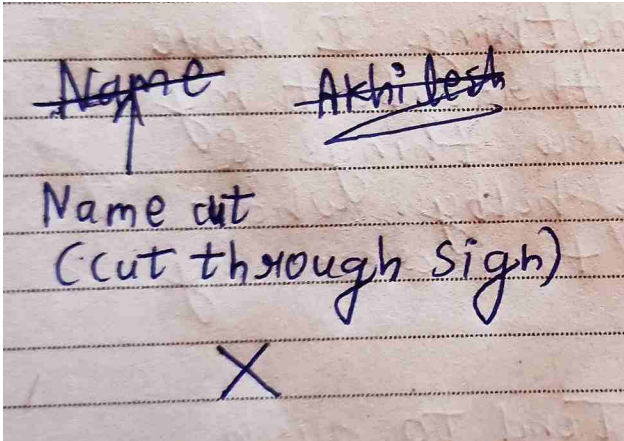 Name Akhilesh
Name cut
(cut through sign)
X